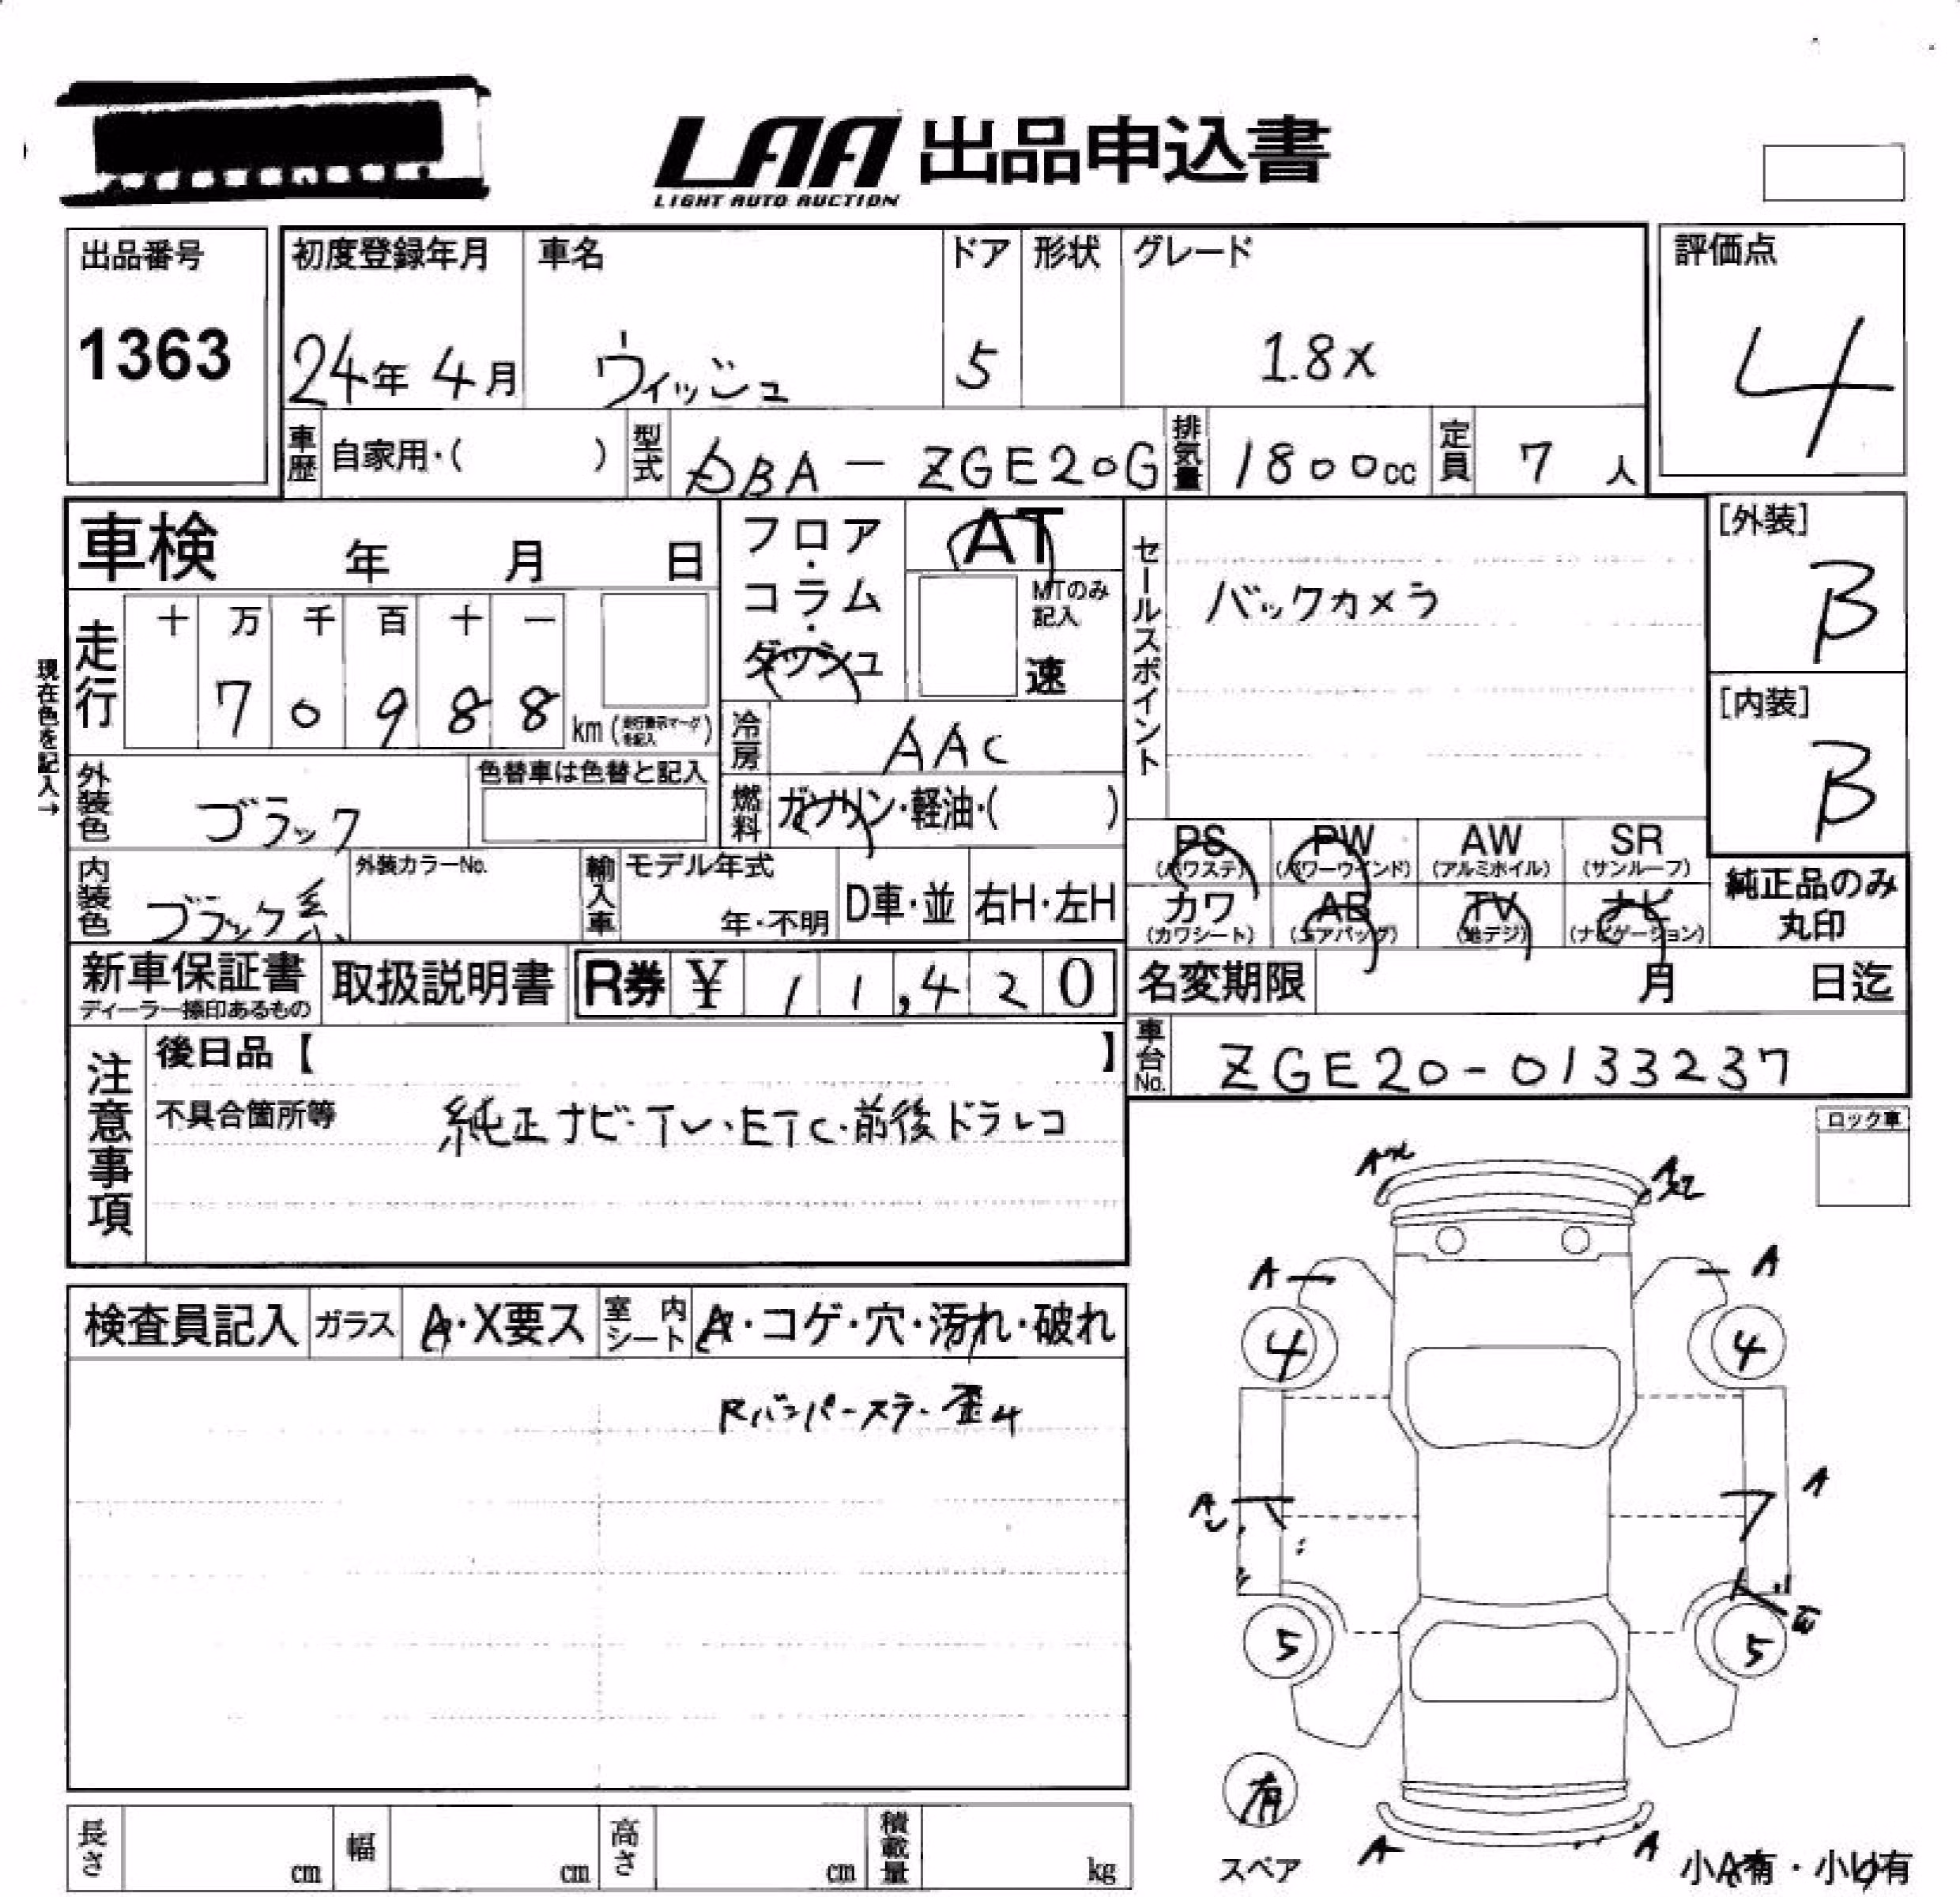 LAA 出品申込書
LIGHT AUTO AUCTION
出品番号
1363
初度登録年月 車名 ドア 形状 グレード
24年 4月 ウィッシュ 5 1.8X
評価点
4
車歴 自家用・( ) 型式 DBA-ZGE20G 排気量 1800cc 定員 7 人
車検 年 月 日
フロア・コラム・ダッシュ
AT
MTのみ記入
速
セールスポイント
バックカメラ
[外装]
B
[内装]
B
現在色を記入→
走行 十 万 千 百 十 一
7 0 9 8 8 km (走行表示マークを記入)
冷房 AAC
外装色 ブラック
色替車は色替と記入
燃料 ガソリン・軽油・( )
内装色 ブラック系
外装カラーNo.
輸入車 モデル年式
年・不明 D車・並 右H・左H
PS (パワステ) PW (パワーウインド) AW (アルミホイル) SR (サンルーフ)
カワ (カワシート) AB (エアバッグ) TV (地デジ) ナビ (ナビゲーション)
純正品のみ
丸印
新車保証書
取扱説明書 R券 ¥ 1 1,4 2 0
名変期限 月 日迄
車台No. ZGE20-0133237
注意事項
後日品【 】
不具合箇所等 純正ナビ・TV・ETC・前後ドラレコ
ロック車
検査員記入 ガラス A・X要ス 室内シート A・コゲ・穴・汚れ・破れ
Rバンパースラ・歪4
A
A A
4 4
A
A
5 5
有
スペア
A A
小A有・小U有
長さ cm 幅 cm 高さ cm 積載量 kg